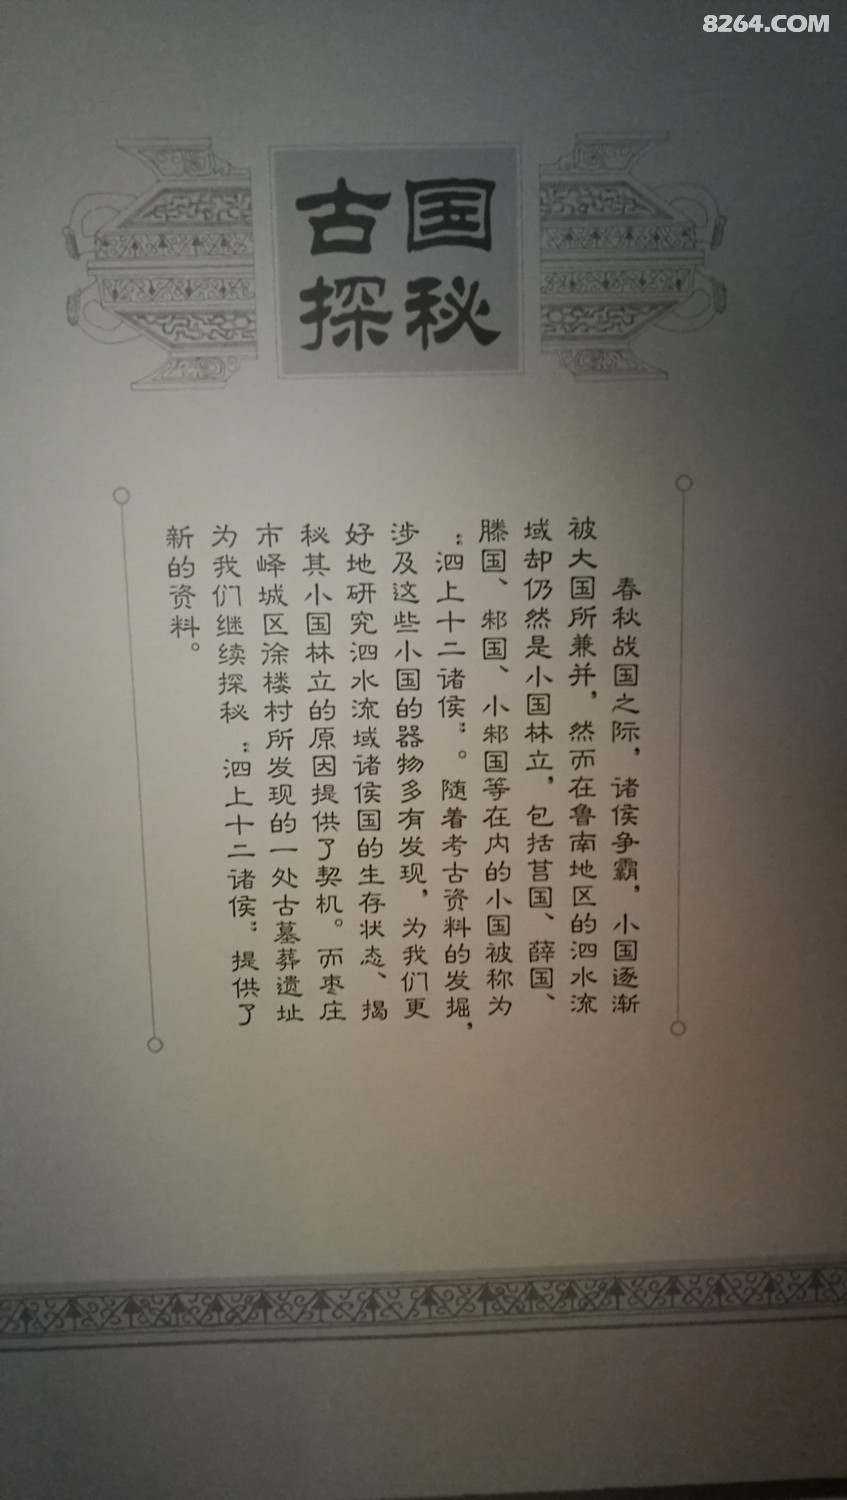 8264.COM
古国
探秘
春秋战国之际，诸侯争霸，小国逐渐
被大国所兼并，然而在鲁南地区的泗水流
域却仍然是小国林立，包括莒国、薛国、
滕国、邾国、小邾国等在内的小国被称为
“泗上十二诸侯”。随着考古资料的发掘，
涉及这些小国的器物多有发现，为我们更
好地研究泗水流域诸侯国的生存状态、揭
秘其小国林立的原因提供了契机。而枣庄
市峄城区徐楼村所发现的一处古墓葬遗址
为我们继续探秘“泗上十二诸侯”提供了
新的资料。